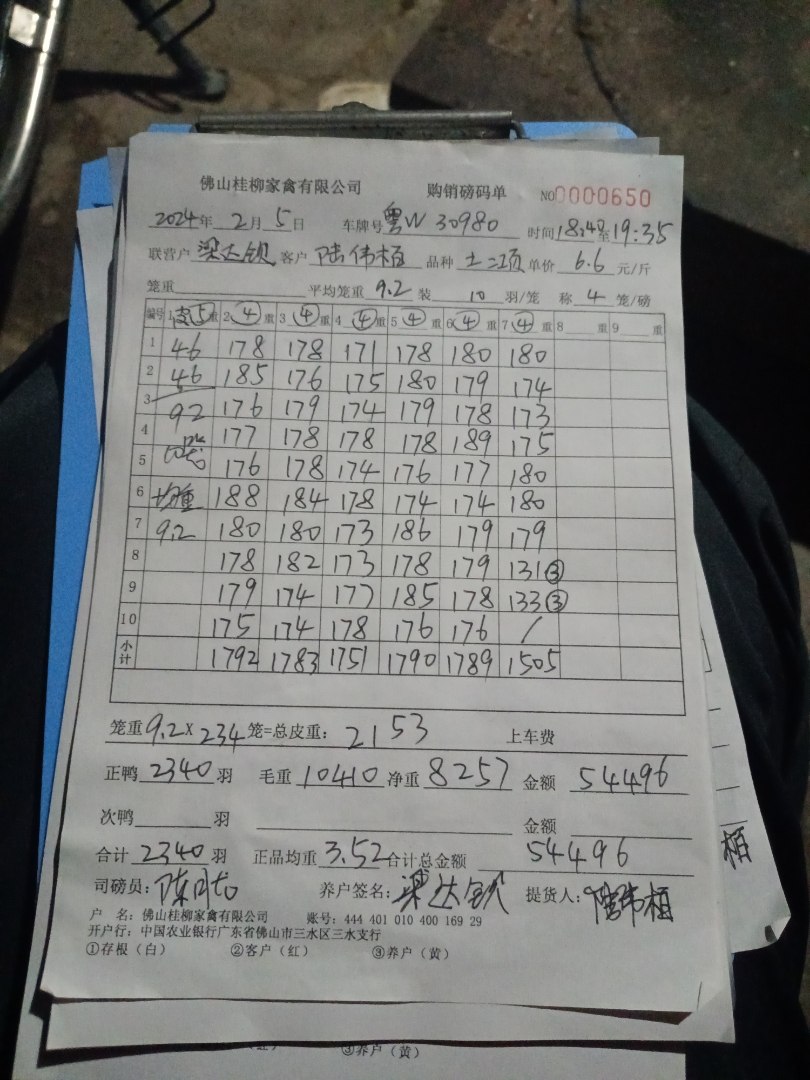 佛山桂柳家禽有限公司 购销磅码单 NO0000650
2024年 2月 5日 车牌号粤W 30980 时间18:40至19:35
联营户 梁达钡 客户 陆伟栢 品种 土二项 单价 6.6 元/斤
笼重 平均笼重 9.2 装 10 羽/笼 称 4 笼/磅
编号 1 皮⑤重 2 ④ 重 3 ④ 重 4 ④ 重 5 ④ 重 6 ④ 重 7 ④ 重 8 重 9 重
1 46 178 178 171 178 180 180
2 46 185 176 175 180 179 174
3 92 176 179 174 179 178 173
4 177 178 178 178 189 175
5 176 178 174 176 177 180
6 均重 188 184 178 174 174 180
7 9.2 180 180 173 186 179 179
8 178 182 173 178 179 131③
9 179 174 177 185 178 133③
10 175 174 178 176 176 /
小计 1792 1783 1751 1790 1789 1505
笼重9.2X 234 笼=总皮重: 2153 上车费
正鸭 2340 羽 毛重 10410 净重 8257 金额 54496
次鸭 羽 金额
合计 2340 羽 正品均重 3.52 合计总金额 54496
司磅员: 陈 养户签名: 梁达钡 提货人: 陆伟栢
户 名: 佛山桂柳家禽有限公司 账号: 444 401 010 400 169 29
开户行: 中国农业银行广东省佛山市三水区三水支行
①存根（白） ②客户（红） ③养户（黄）
栢
③养户（黄）